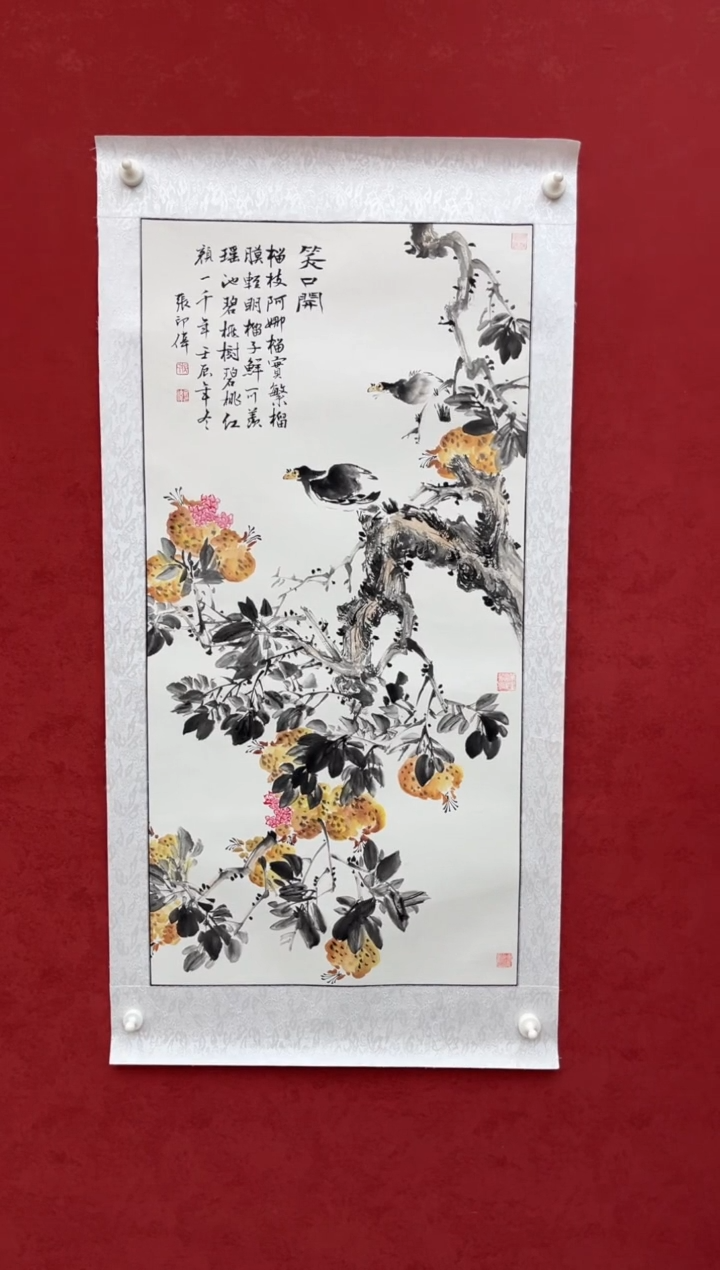 笑口開
榴枝阿娜榴實繁榴
膜輕明榴子鮮可羡
瑶池碧桃樹碧桃红
頰一千年壬辰年冬
張印偉